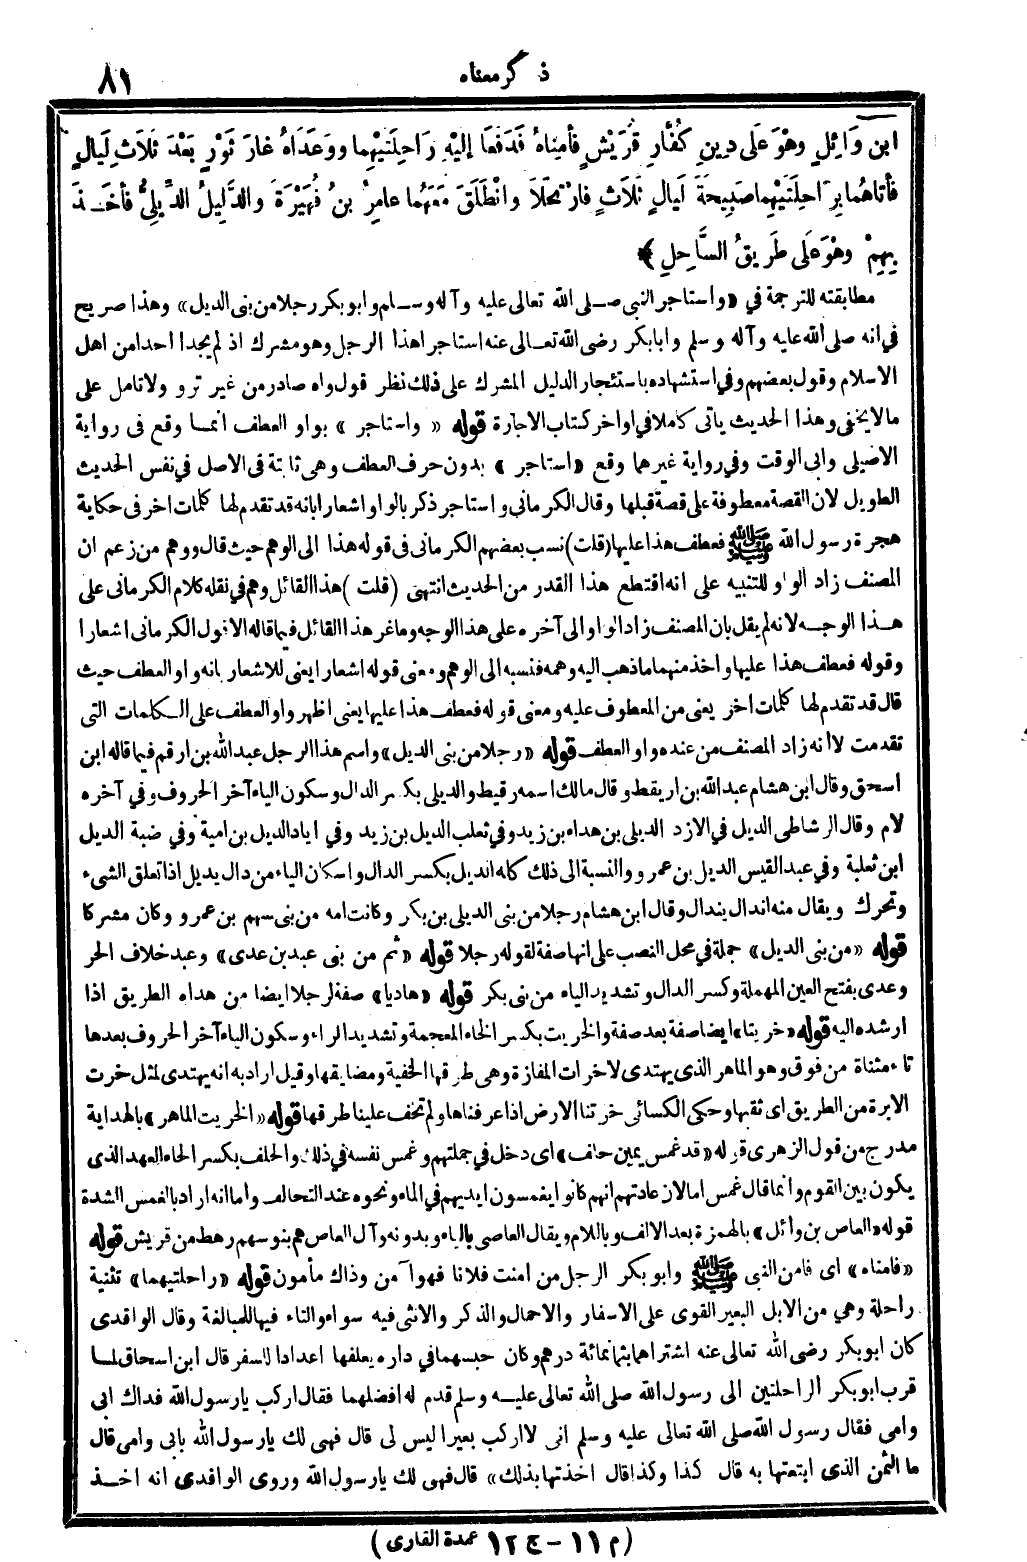 ذكر معناه ٨١
ابن وَائِلٍ وهْوَ عَلَى دِينِ كُفَّارِ قُرَيْشٍ فأمِنَاهُ فَدَفَعَا إلَيْهِ رَاحِلَتَيْهِما ووَعَدَاهُ غارَ ثَوْرٍ بَعْدَ ثَلاَثِ لَيالٍ
فأتاهُما بِرَاحِلَتَيْهِما صَبِيحَةَ لَيالٍ ثَلاَثٍ فارْتَحَلاَ وانْطَلَقَ مَعَهُما عامِرُ بنُ فُهَيْرَةَ والدَّلِيلُ الدِّيلِيُّ فأخَذَ
بِهِمْ وهْوَ عَلَى طَرِيقُ السَّاحِلِ ﴾
مطابقته للترجمة في «واستاجر النبى صلى الله تعالى عليه وآله وسلم وابو بكر رجلا من بنى الديل» وهذا صريح
في انه صلى الله عليه وآله وسلم وابابكر رضى الله تعالى عنه استاجرا هذا الرجل وهو مشرك اذ لم يجدا احدا من اهل
الاسلام وقول بعضهم وفي استشهاده باستئجار الدليل المشرك على ذلك نظر قول واه صادر من غير ترو ولا تامل على
مالا يخفى وهذا الحديث ياتى كاملا في اواخر كتاب الاجارة قوله «واستاجر» بواو العطف انما وقع فى رواية
الاصيلى وابى الوقت وفي رواية غيرهما وقع «استاجر» بدون حرف العطف وهى ثابتة فى الاصل في نفس الحديث
الطويل لان القصة معطوفة على قصة قبلها وقال الكرمانى واستاجر ذكر بالواو اشعارا بانه قد تقدم لها كلمات اخر فى حكاية
هجرة رسول الله ﷺ فعطف هذا عليها (قلت) نسب بعضهم الكرمانى فى قوله هذا الى الوهم حيث قال ووهم من زعم ان
المصنف زاد الواو للتنبيه على انه اقتطع هذا القدر من الحديث انتهى (قلت) هذا القائل وهم في نقله كلام الكرمانى على
هذا الوجه لانه لم يقل بان المصنف زاد الواو الى آخره على هذا الوجه وما غر هذا القائل فيما قاله الا قول الكرمانى اشعارا
وقوله فعطف هذا عليها واخذ منهما ما ذهب اليه وهمه فنسبه الى الوهم ومعنى قوله اشعارا يعنى للاشعار بانه واو العطف حيث
قال قد تقدم لها كلمات اخر يعنى من المعطوف عليه ومعنى قوله فعطف هذا عليها يعنى اظهر واو العطف على الكلمات التى
تقدمت لا أنه زاد المصنف من عنده واو العطف قوله «رجلا من بنى الديل» واسم هذا الرجل عبد الله بن ارقم فيما قاله ابن
اسحق وقال ابن هشام عبد الله بن اريقط وقال مالك اسمه رقيط والديلى بكسر الدال وسكون الياء آخر الحروف وفي آخره
لام وقال الرشاطى الديل في الازد الديلى بن هداه بن زيد وفي ثعلب الديل بن زيد وفي اياد الديل بن امية وفي ضبة الديل
ابن ثعلبة وفي عبد القيس الديل بن عمرو والنسبة الى ذلك كله الديل بكسر الدال واسكان الياء من دال يديل اذا تعلق الشىء
وتحرك ويقال منه اندال يندال وقال ابن هشام رجلا من بنى الديلى بن بكر وكانت امه من بنى سهم بن عمرو وكان مشركا
قوله «من بنى الديل» جملة في محل النصب على انها صفة لقوله رجلا قوله «ثم من بنى عبد بن عدى» وعبد خلاف الحر
وعدى بفتح العين المهملة وكسر الدال وتشديد الياء من بنى بكر قوله «هاديا» صفة لرجلا ايضا من هداه الطريق اذا
ارشده اليه قوله «خريتا» ايضا صفة بعد صفة والخريت بكسر الخاء المعجمة وتشديد الراء وسكون الياء آخر الحروف بعدها
تاء مثناة من فوق وهو الماهر الذى يهتدى لاخرات المفازة وهى طرقها الخفية ومضايقها وقيل اراد به انه يهتدى لمثل خرت
الابرة من الطريق اى ثقبها وحكى الكسائى خرتنا الارض اذا عرفناها ولم تخف علينا طرقها قوله «الخريت الماهر» بالهداية
مدرج من قول الزهرى قوله «قد غمس يمين حلف» اى دخل في جملتهم وغمس نفسه في ذلك والحلف بكسر الحاء العهد الذى
يكون بين القوم وانما قال غمس اما لان عادتهم انهم كانوا يغمسون ايديهم في الماء ونحوه عند التحالف واما انه اراد بالغمس الشدة
قوله «العاص بن وائل» بالهمزة بعد الالف وباللام ويقال العاصى بالياء وبدونه وآل العاص هم بنو سهم رهط من قريش قوله
«فامناه» اى فامن النبى ﷺ وابو بكر الرجل من امنت فلانا فهو آمن وذاك مأمون قوله «راحلتيهما» تثنية
راحلة وهي من الابل البعير القوى على الاسفار والاحمال والذكر والانثى فيه سواء والتاء فيها للمبالغة وقال الواقدى
كان ابو بكر رضى الله تعالى عنه اشتراهما بثمانمائة درهم وكان حبسهما في داره يعلفها اعدادا للسفر قال ابن اسحاق لما
قرب ابو بكر الراحلتين الى رسول الله صلى الله تعالى عليه وسلم قدم له افضلهما فقال اركب يا رسول الله فداك ابى
وامى فقال رسول الله صلى الله تعالى عليه وسلم انى لا اركب بعيرا ليس لى قال فهى لك يا رسول الله بابى وامى قال
ما الثمن الذى ابتعتها به قال كذا وكذا قال اخذتها بذلك» قال فهى لك يا رسول الله وروى الواقدى انه اخذ
(م ١١ – ج ١٢ عمدة القارى)